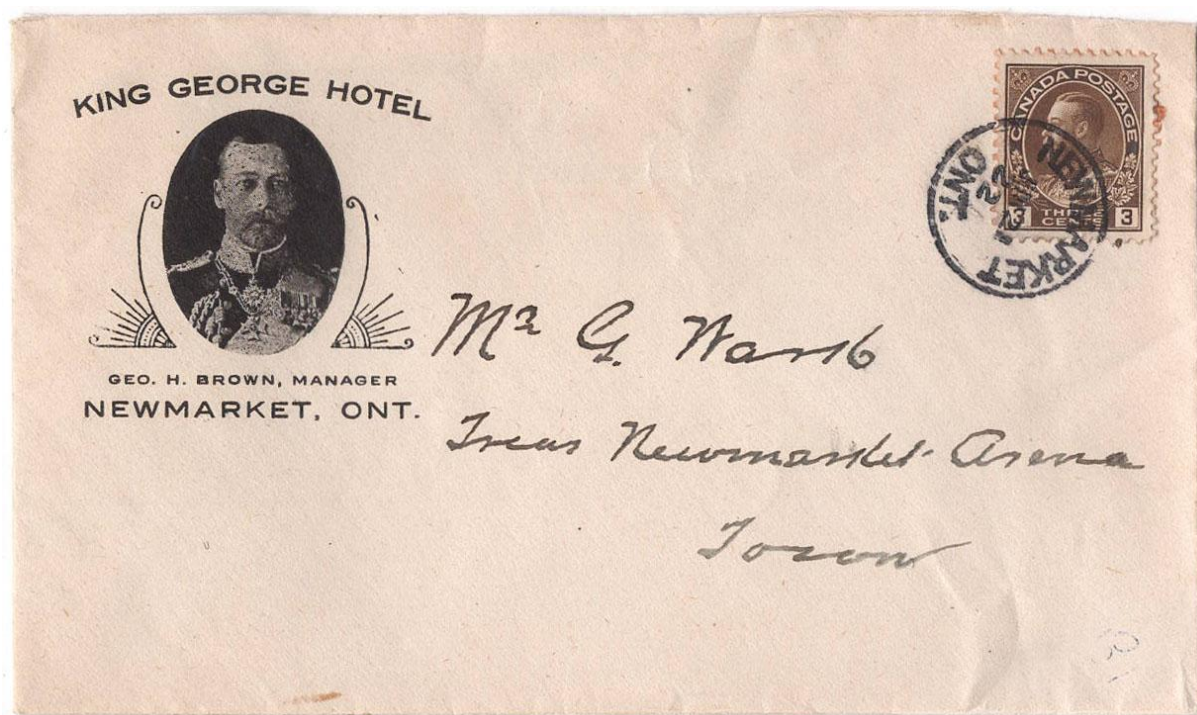 KING GEORGE HOTEL
GEO. H. BROWN, MANAGER
NEWMARKET, ONT.
CANADA POSTAGE
3 THREE CENTS 3
NEWMARKET
ONT.
22
Mr G.
Treas Newmarket Arena